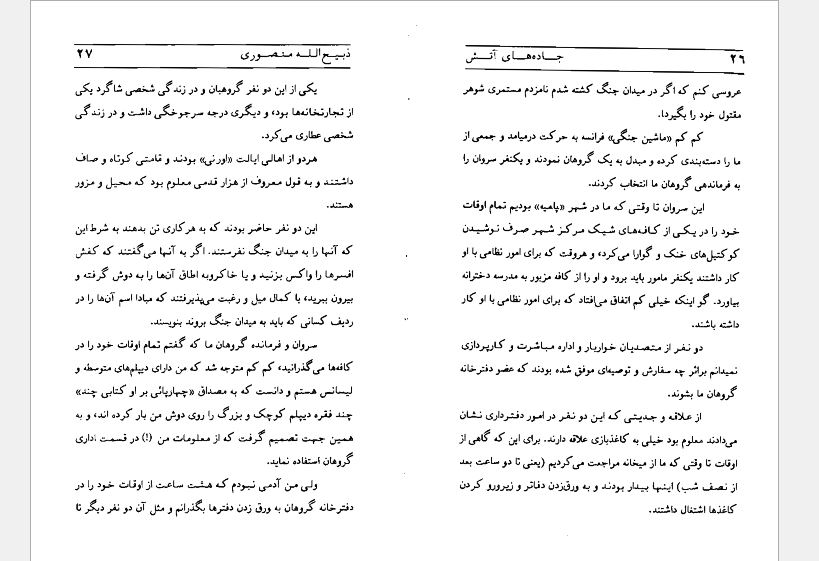 ۲۶ جاده‌های آتش
عروسی کنم که اگر در میدان جنگ کشته شدم نامزدم مستمری شوهر
مقتول خود را بگیرد).
کم کم «ماشین جنگی» فرانسه به حرکت درمیامد و جمعی از
ما را دسته‌بندی کرده و مبدل به یک گروهان نمودند و یکنفر سروان را
به فرماندهی گروهان ما انتخاب کردند.
این سروان تا وقتی که ما در شهر «پامیه» بودیم تمام اوقات
خود را در یکی از کافه‌های شیک مرکز شهر صرف نوشیدن
کوکتیل‌های خنک و گوارا می‌کرد، و هروقت که برای امور نظامی با او
کار داشتند یکنفر مامور باید برود و او را از کافه مزبور به مدرسه دخترانه
بیاورد. گو اینکه خیلی کم اتفاق می‌افتاد که برای امور نظامی با او کار
داشته باشند.
دو نفر از متصدیان خواربار و اداره مباشرت و کارپردازی
نمیدانم براثر چه سفارش و توصیه‌ای موفق شده بودند که عضو دفترخانه
گروهان ما بشوند.
از علاقه و جدیتی که این دو نفر در امور دفترداری نشان
می‌دادند معلوم بود خیلی به کاغذبازی علاقه دارند. برای این که گاهی از
اوقات تا وقتی که ما از میخانه مراجعت می‌کردیم (یعنی تا دو ساعت بعد
از نصف شب) اینها بیدار بودند و به ورق‌زدن دفاتر و زیرورو کردن
کاغذها اشتغال داشتند.
ذبیح‌الله منصوری ۲۷
یکی از این دو نفر گروهبان و در زندگی شخصی شاگرد یکی
از تجارتخانه‌ها بود، و دیگری درجه سرجوخگی داشت و در زندگی
شخصی عطاری می‌کرد.
هردو از اهالی ایالت «اورنی» بودند و قامتی کوتاه و صاف
داشتند و به قول معروف از هزار قدمی معلوم بود که محیل و مزور
هستند.
این دو نفر حاضر بودند که به هرکاری تن بدهند به شرط این
که آنها را به میدان جنگ نفرستند. اگر به آنها می‌گفتند که کفش
افسرها را واکس بزنید و یا خاکروبه اطاق آن‌ها را به دوش گرفته و
بیرون ببرید، با کمال میل و رغبت می‌پذیرفتند که مبادا اسم آن‌ها را در
ردیف کسانی که باید به میدان جنگ بروند بنویسند.
سروان و فرمانده گروهان ما که گفتم تمام اوقات خود را در
کافه‌ها می‌گذرانید، کم کم متوجه شد که من دارای دیپلم‌های متوسطه و
لیسانس هستم و دانست که به مصداق «چهارپائی بر او کتابی چند»
چند فقره دیپلم کوچک و بزرگ را روی دوش من بار کرده اند، و به
همین جهت تصمیم گرفت که از معلومات من (!) در قسمت اداری
گروهان استفاده نماید.
ولی من آدمی نبودم که هشت ساعت از اوقات خود را در
دفترخانه گروهان به ورق زدن دفترها بگذرانم و مثل آن دو نفر دیگر تا